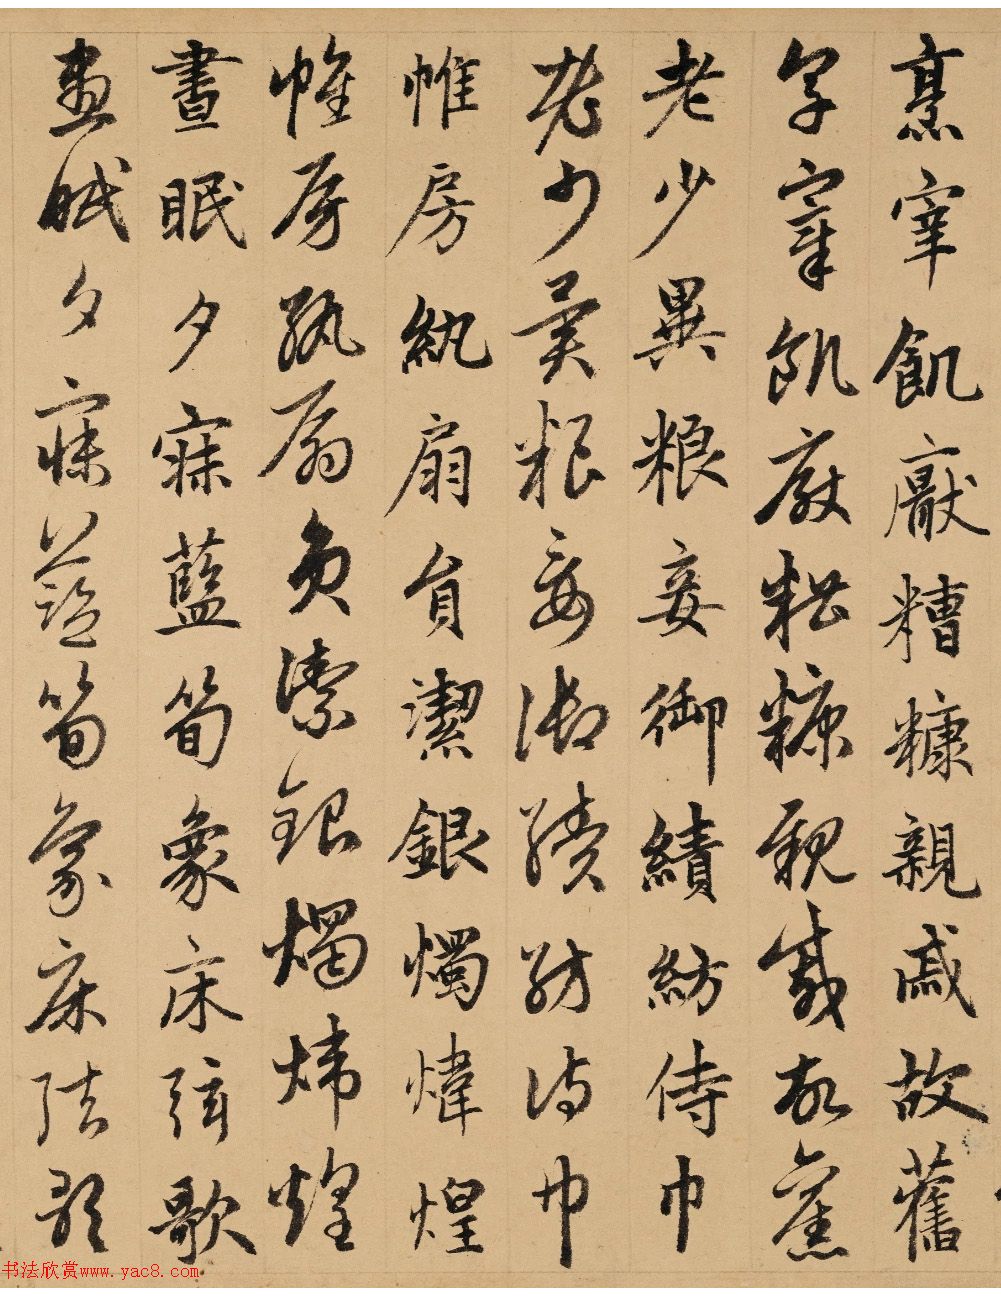 烹宰飢厭糟糠親戚故舊
烹宰飢厭糟糠親戚故舊
老少異粮妾御績紡侍巾
老少異粮妾御績紡侍巾
帷房紈扇員潔銀燭煒煌
帷房紈扇員潔銀燭煒煌
晝眠夕寐藍筍象床弦歌
晝眠夕寐藍筍象床弦歌
书法欣赏www.yac8.com